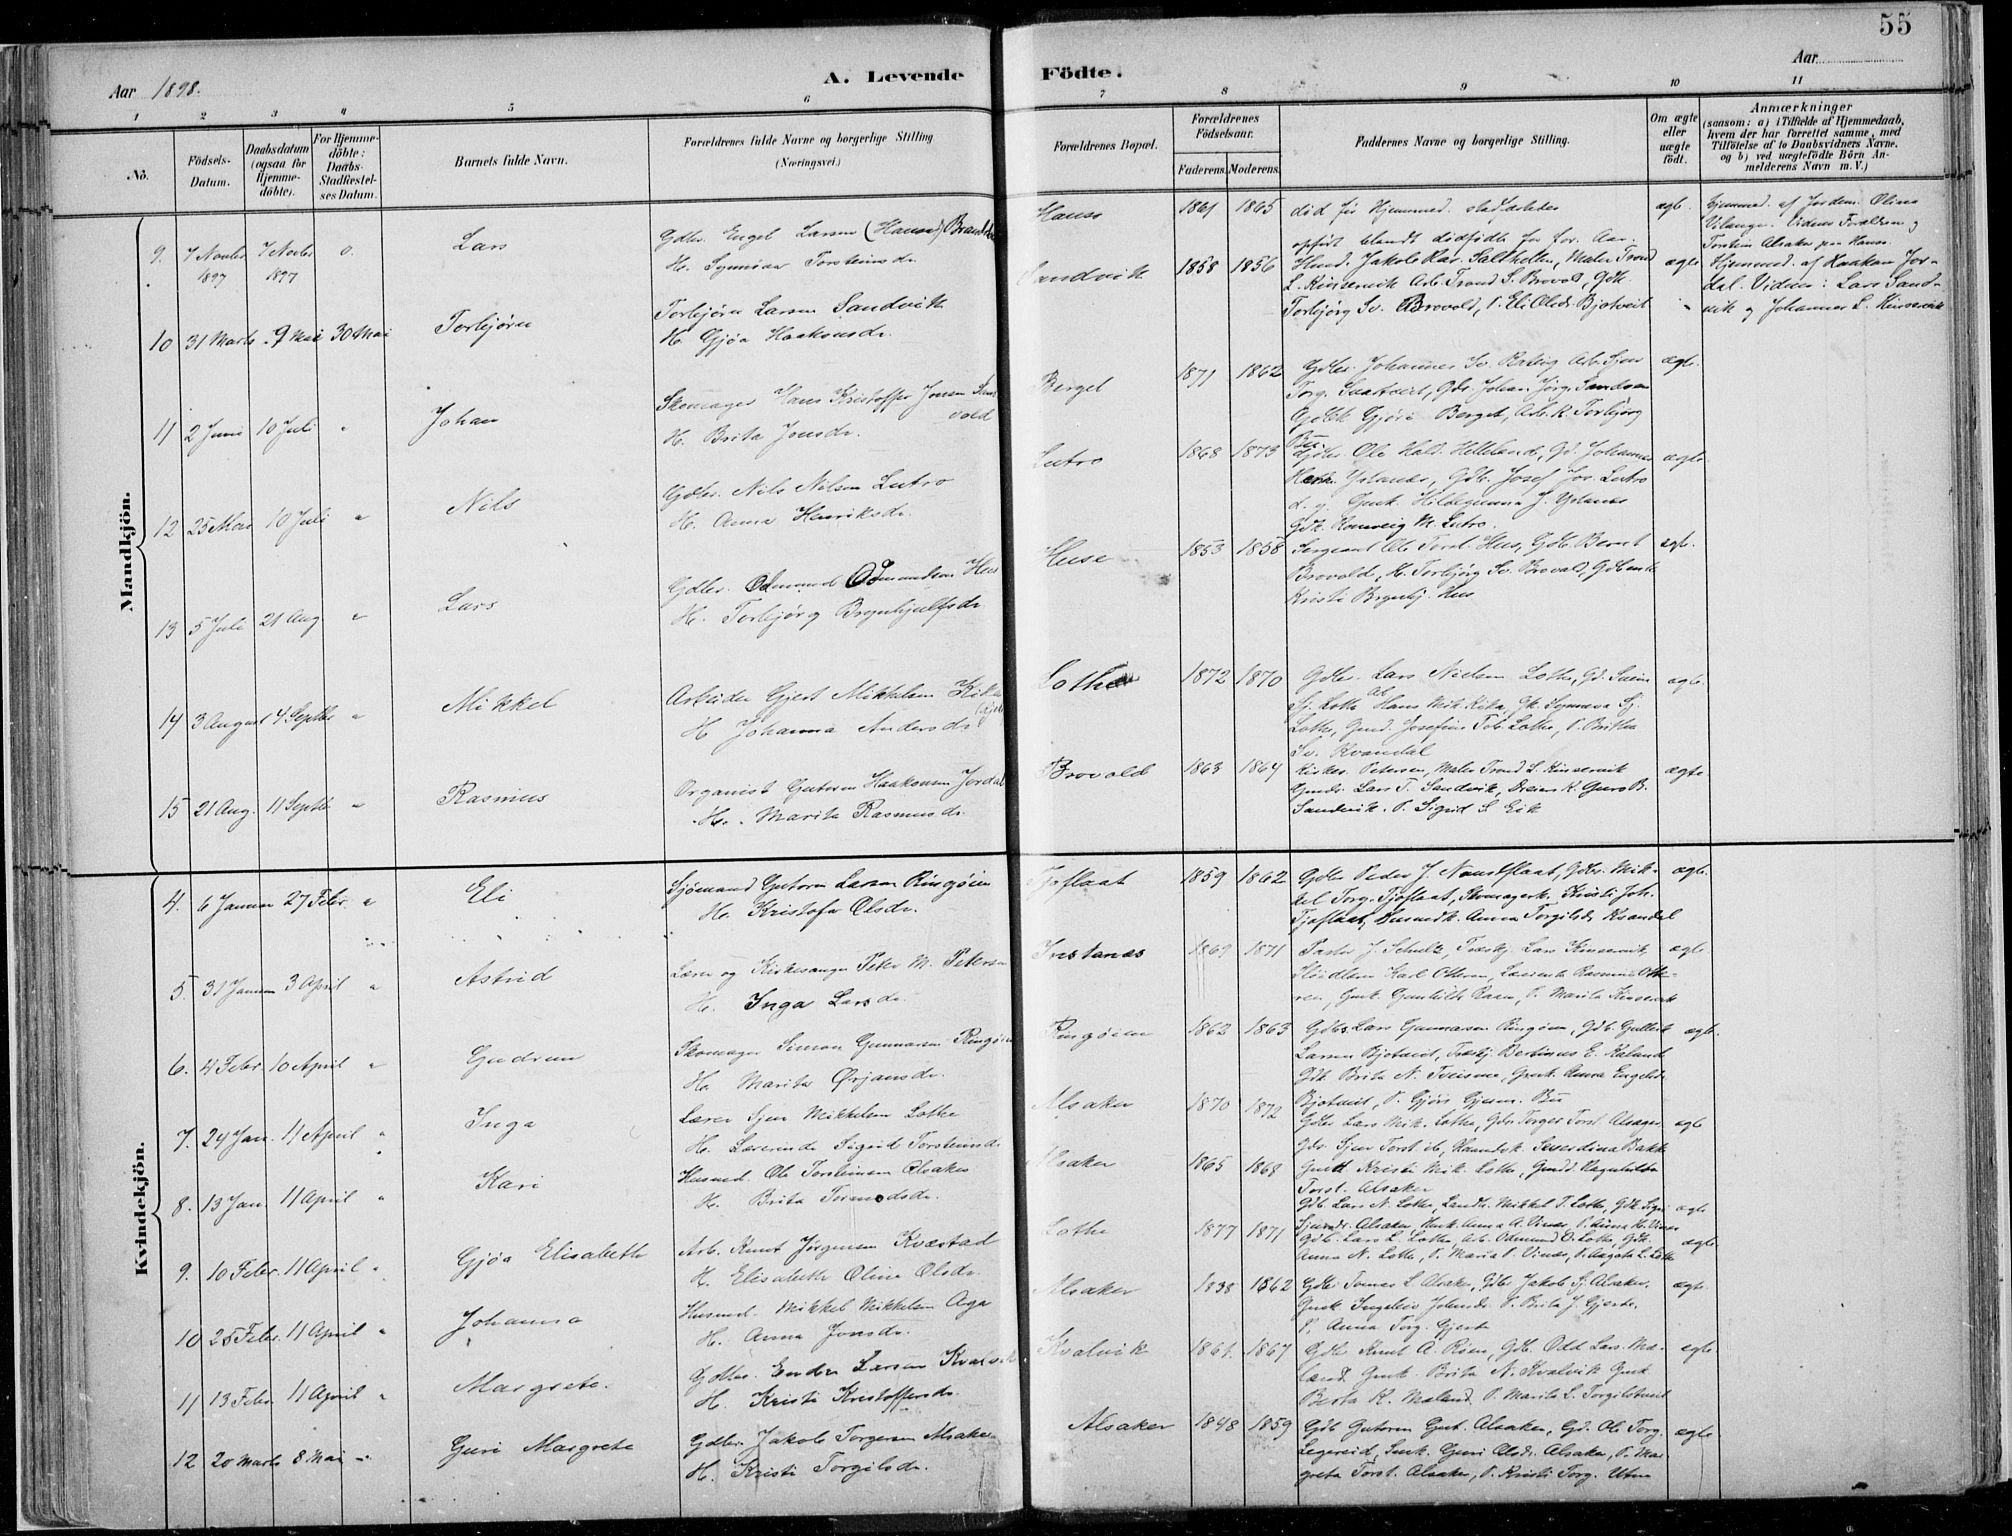 55
Aar 1898.
A. Levende Födte.
Aar
1 2 3 4 5 6 7 8 9 10 11
No.
Födsels-Datum.
Daabsdatum (ogsaa for Hjemme-döbte).
For Hjemme-döbte: Daabs-Stadfæstel-ses Datum.
Barnets fulde Navn.
Forældrenes fulde Navne og borgerlige Stilling (Næringsvei.)
Forældrenes Bopæl.
Forældrenes Födselsaar.
Faderens. Moderens.
Faddernes Navne og borgerlige Stilling.
Om ægte eller uægte födt.
Anmærkninger
(saasom: a) i Tilfælde af Hjemmedaab, hvem der har forrettet samme, med Tilföielse af to Daabsvidners Navne. og b) ved uægtefödte Börn An-melderens Navn m. V.)
Mandkjön.
9. 7 Novbr 1897 7 Novbr 1897 0. Lars
Gdbr. Engel Larsen (Hanso)
H. Synnøva Torsteinsdr.
Hanso 1861 1865 død før Hjemmed. stadfæstedes ægt.
opført blandt dødfødte for for. Aar.
Hjemmed. af Jordem. Olina
Vidner Forældrene og
Torstein Alsaker paa Hanso.
10 31 Marts 9 Mai 30 Mai Torbjørn
Torbjørn Larsen Sandvik
H. Gjøa Haaksonsdr.
Sandvik 1858 1856 Jakob Ras. Salthella, Maler Trond ægte
L. Kinservik Arb. Trond S. Brovold, Gdk.
Torbjørg Sv. Brovold, P. Eli Olsdr. Bjotveit
Hjemmed. af Haakon Jor-
dal. Vidner: Lars Sand-
vik og Johannes L. Kinservik
11 2 Juni 10 Juli " Johan
Skomager Hans Kristoffer Jonsen
H. Brita Jonsdr.
Berget 1871 1862 Gdbr. Johannes Sv. Arb. Sjur ægte.
Torg. Gdr. Johan Jørg. Sandven
Gjøri Berget, Arb. K. Torbjørg
Bu.
12 25 10 Juli " Nils
Gdbr. Nils Nilsen Lutro
H. Anna Henriksdr.
Lutro 1868 1873 Gdbr. Ole Hald. Helleland, Gd. Johannes ægte
Henr. Gdb. Josef Jos. Lutro
Gmk. Hildegunna J.
Gdk. Ranveig M. Lutro.
13 5 Juli 21 Aug " Lars
Gdbr. Odmund Odmundsen Hus
H. Torbjørg Brynhjulfsdr.
Huse 1853 1858 Sergeant Ole Torst. Hus, Gdb. Bernt ægt.
Brovold, H. Torbjørg Sv. Brovold,
Kristi Brynhj. Hus
14 3 August 4 Septbr " Mikkel
Arbeider Gjert Mikkelsen
H Johanna Andersdr.
Lothe 1872 1870 Gdbr. Lars Nielsen Lothe, Gd. ægte.
Sj. Lothe Hans Mik. Gk. Synneva Sj.
Lothe, Gmd. Josefine Tob. Lothe, P. Britha
Sv. Kvandal
15 21 Aug. 11 Septbr " Rasmus
Organist Gutorm Haaksonsen Jordal
H. Marita Rasmusdr.
Brovold 1863 1864 Kirkes. Petersen, Maler Trond L. Kinservik ægte
Lars T. Sandvik, Guro B.
Sandvik. P. Sigrid S. Eik
Kvindekjön.
4. 6 Januar 27 Febr. " Eli
Sjømand Gutorm Larsen Ringøien
H. Kristofa Olsdr.
Tjoflaat 1859 1862 Gdbr Peder J. Gdbr. Mik- ægte.
kel Torg. Tjoflaat, Skomagerk. Kristi Joh.
Tjoflaat, Husmdk. Anna Torgilsdr. Kvandal
5. 31 Januar 3 April " Astrid
Lærer og Kirkesanger Peter M. Petersen
H. Inga Larsdr.
1869 1871 Pastor J. Schultz, Træskj. Lars Kinservik, ægte.
Karl Ottersen, Rasmine Otte-
sen, Gmk. Gunhilda P. Marita Kinservik
6. 4 Febr 10 April " Gudrun
Skomager Simon Gunnarsen Ringøien
H. Marita Ørjansdr.
Ringøien 1862 1863 Gdbr. Lars Gunnarsen Ringøien, Gdb. Gullik ægte.
Larsen Bjotveit, Træskj. Bertinus E. Kaland
Gdk. Brita N. Tveisme, Gmk. Anna Engelsdr.
Bjotveit, P. Gjøri Gjerm. Bu
7. 24 Jan. 11 April " Inga
Lærer Sjur Mikkelsen Lothe
H. Lærerinde Sigrid Torsteinsdr.
Alsaker 1870 1872 Gdbr Lars Mik. Lothe, Gdr Torger Torst. Alsager, ægte
Gdr Sjur Torst. ib, Haandv. Severdina Bakke
Gmk Kristi Mik. Lothe, Gmd. Ragnhilda
Torst. Alsaker
8. 13 Jan. 11 April " Kari
Husmd. Ole Torsteinsen Alsaker
H. Brita Tormodsdr.
Alsaker 1865 1868 Gdb. Lars N. Lothe, Landh. Mikkel T. Lothe, Gdk. Sigri ægte
Sjursdr. Alsaker, Anna A. Vines, P. Anna H. Vines
9. 10 Febr. 11 April " Gjøa Elisabeth
Arb. Knut Jørgensen Kvæstad
H. Elisabeth Oline Olsdr.
Lothe 1877 1871 Gdb. Lars L. Lothe, Arb. Odmund O. Lothe, Gdk. ægte.
Anna N. Lothe, P. Maria P. Vines, P. Aagata L. Lothe
10 25 Febr. 11 April " Johanna
Husmd. Mikkel Mikkelsen Aga
H. Anna Jonsdr.
Alsaker 1838 1862 Gdbr Tomas L. Alsaker, Gdbr Jakob Sj. Alsaker. ægte.
Gmk Ingeleiv P. Brita J. Gjerde.
P. Anna Torg. Gjerde
11 13 Febr. 11 April " Margreta.
Gdbr. Endre Larsen Kvalvik
H. Kristi Kristoffersdr.
Kvalvik 1861. 1867 Gdb. Knut A. Røen, Gdb. Odd Lars. Mæ- ægte
land. Gmk. Brita N. Kvalvik Gmk
Berta K. Mæland. P. Marita L. Torgilstveit
12 20 Marts 8 Mai " Guri Margreta
Gdbr. Jakob Torgersen Alsaker
H. Kristi Torgilsdr.
Alsaker 1848 1859 Gdb Gutorm Gut. Alsaker, Gd. Ole Torg. ægte
Legereid, Guri Olsdr. Alsaker, P. Mar-
greta Torst. Alsaker, P. Kristi Torg. Utne